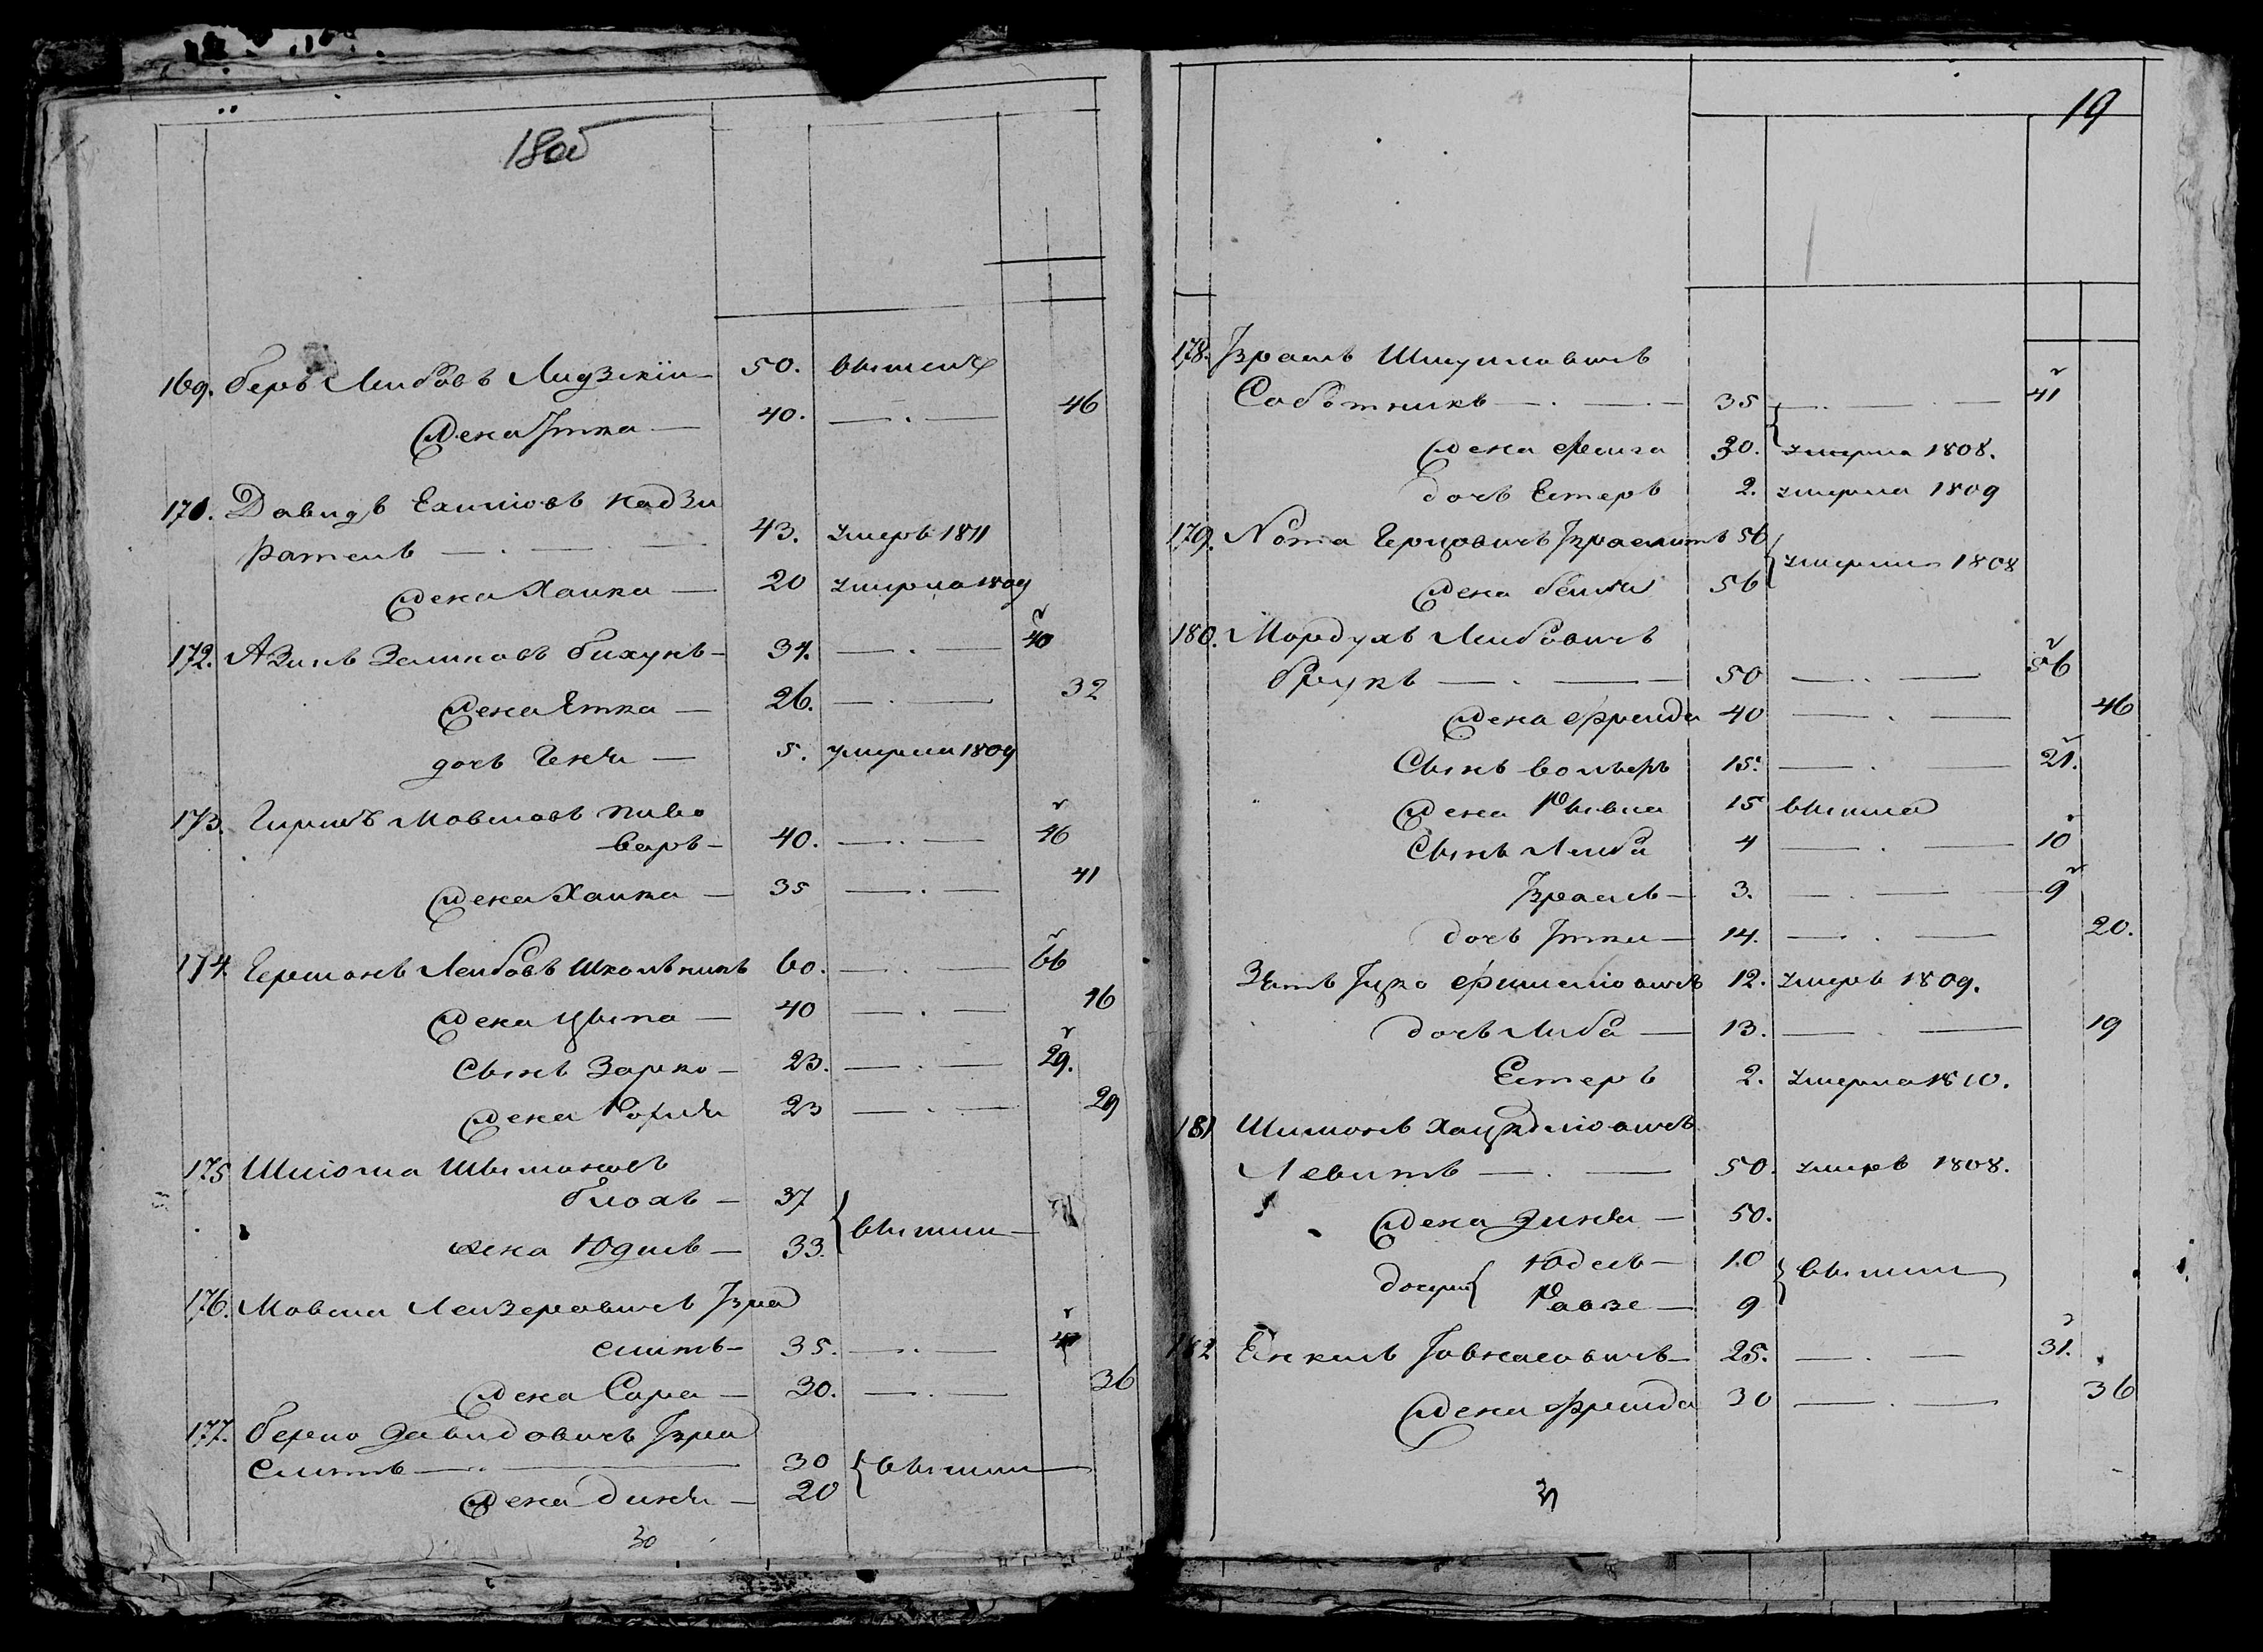 18 об
169. Беръ Лейбовъ Лидзкій — 50. вышелъ
Жена Итка — 40. — . — 46
170. Давидъ Ехимовъ Кадзи
ратель — . — 43. умеръ 1811
Жена Хайка — 20 умерла 1809
172. Азикъ Зеликовъ Бихукъ — 34. — . — 40
Жена Етка — 26. — . — 32
дочь Генъи — 5. умерла 1809
173. Гиршъ Мовшовъ Пиво
варъ — 40. — . — 46
Жена Хайка — 35 — . — 41
174. Гершонъ Лейбовъ Школьникъ 60. — . — 66
Жена Цыпа — 40 — . — 46
Сынъ Зарко — 23. — . — 29.
Жена 23 — . — 29
175 Шліома Шымоновъ
Блохъ — 37
Жена Юдись — 33. вышли —
176. Мовша Лейзеровичъ Изра
елитъ — 35. — . — 41
Жена Сора — 30. — . — 36
177. Берко Давидовичъ Изра
елитъ — . — 30 вышли
Жена Динъи — 20
30
19
178. Израиль Шмуиловичъ
Соботникъ — . — . — 35 — . — 41
Жена Фейга 30. умерла 1808.
дочь Естеръ 2. умерла 1809
179. Нота Герцовичъ Израелитъ 56
умерли 1808
Жена Бейля 56
180. Мордухъ Лейбовичъ
Брукъ — . — 50 — . — 56
Жена Фрейда 40 — . — 46
Сынъ Вольеръ 15. — . — 21.
Жена Рывка 15 вышла
Сынъ Лейба 4 — . — 10
Израиль — 3. — . — 9
дочь Итка — 14. — . — 20.
Зять Ицко Фишеліовичъ 12. умеръ 1809.
дочь Либа — 13. — . — 19
Естеръ 2. умерла 1810.
181 Шимонъ Хацкеліовичъ
Левитъ — . — 50. умеръ 1808.
Жена Зинъи — 50.
дочери Юдесь — 10 вышли
9
182 Енкель Іовнасовичъ — 25. — . — 31.
Жена Фрейда 30 — . — 36